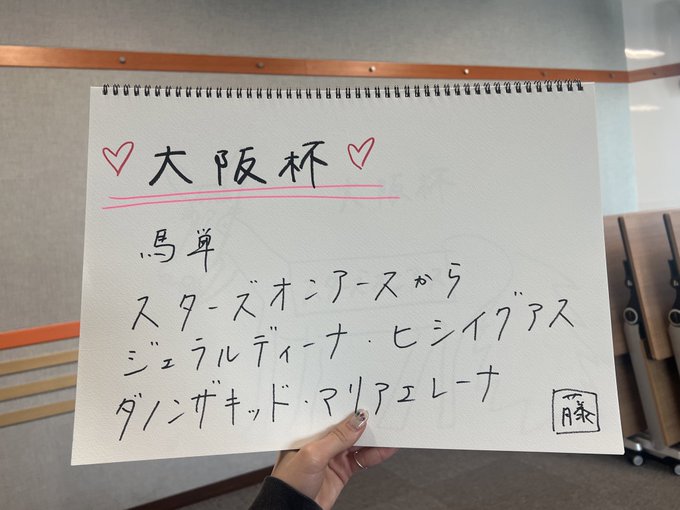 ♡大阪杯♡
馬単
スターズオンアースから
ジェラルディーナ・ヒシイグアス
ダノンザキッド・マリアエレーナ
藤